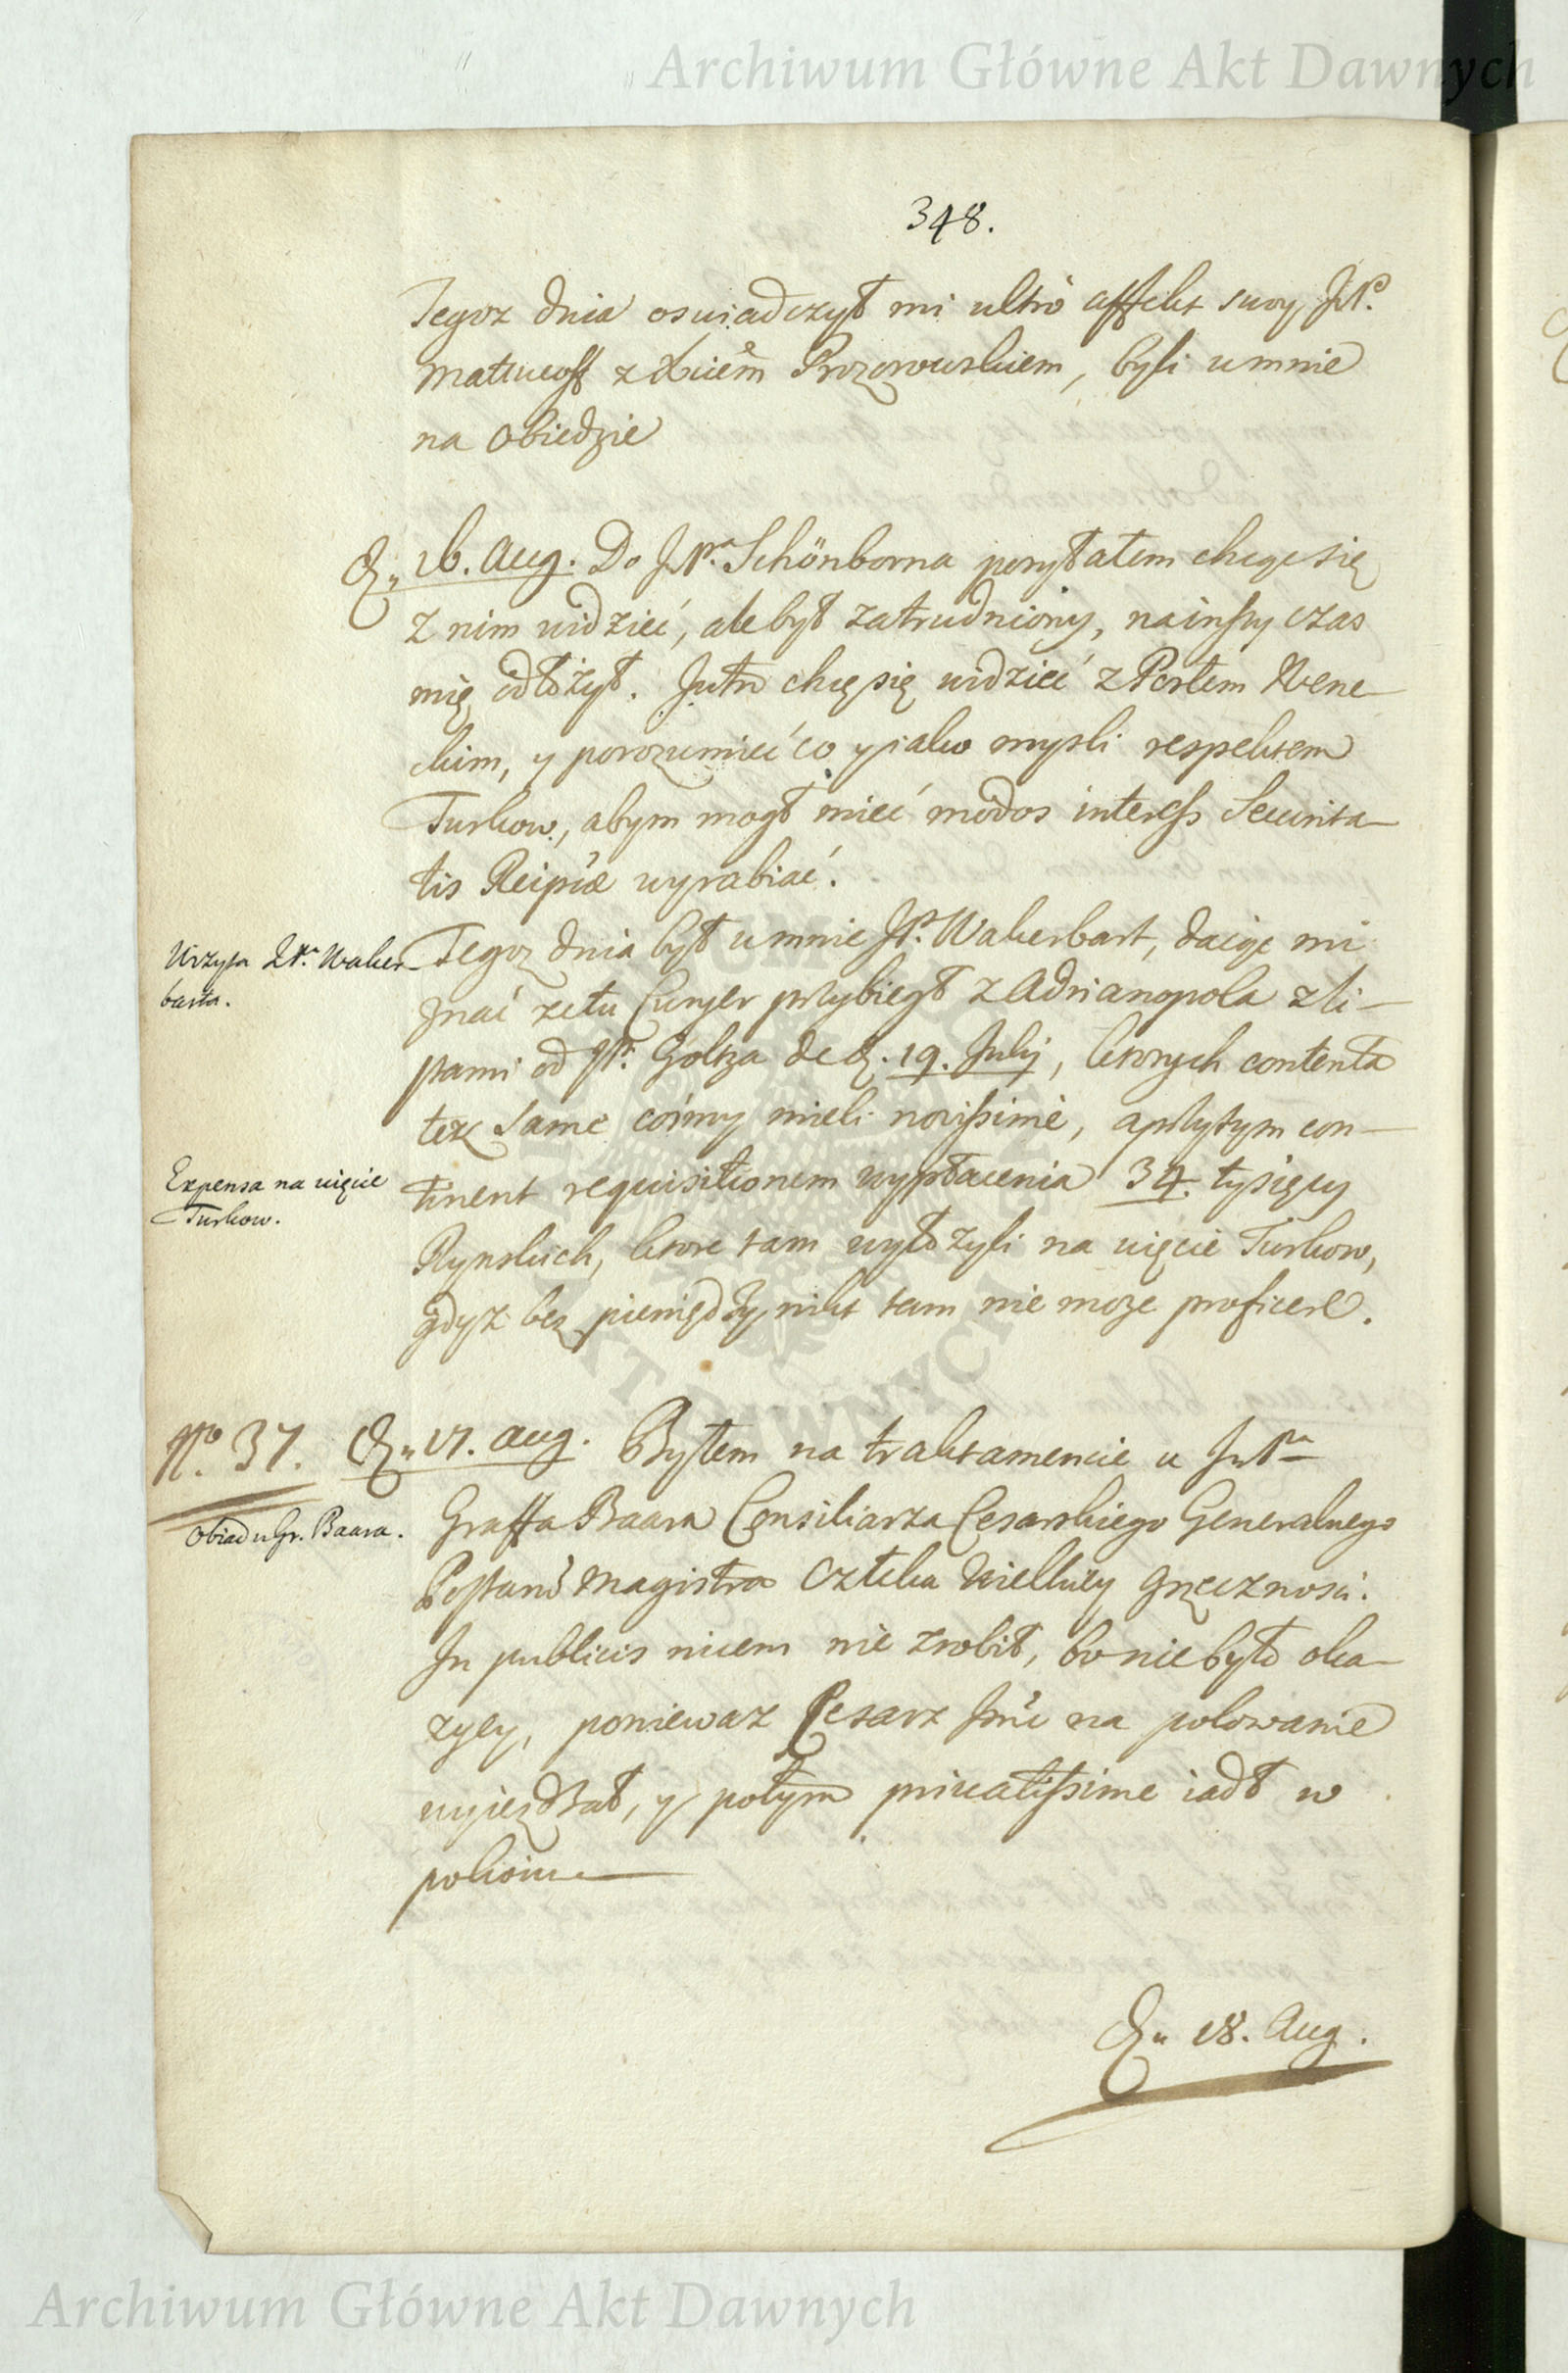 Archiwum Główne Akt Dawnych
348.
Tegoz dnia oswiadczył mi ultrò affekt swoy JP.
Matueoff z Xiciem Prozorowskiem, byli u mnie
na obiedzie
D. 16. Aug. Do JP. Schönborna posyłałem chcąc się
z nim widzieć, ale był zatrudniony, na inszy czas
mię odłożył. Jutro chcę się widziec z Posłem Wene-
ckim, y porozumieć co y iako mysli respektem
Turkow, abym mogł mieć modos interess Securita-
tis Reipcæ wyrabiać.
Wizyta JP. Waker-
barta.
Tegoz dnia był u mnie JP. Wakerbart, daiąc mi
znać ze tu Curyer przybiegł z Adrianopola z li-
stami od JP. Goltza de d. 19. Julij, ktorych contenta
tez same cośmy mieli novissimè, a przytym con-
Expensa na uięcie
Turkow.
tinent requisitionem wypłacenia 34. tysięcy
Rynskich, ktore tam wyłożyli na uięcie Turkow,
gdyz bez pieniędzy nikt tam nie moze proficere.
No. 37. D. 17. Aug. Byłem na traktamencie u JP.
Obiad u Gr. Baara.
Graffa Baara Consiliarza Cesarskiego Generalnego
Postarũ Magistra Człeka Wielkiey grzecznosci.
In publicis nicem nie zrobił, bo nie było oka-
zyey, poniewaz Cesarz Jmć na polowanie
wyiezdzał, y potym privatissime iadł w
pokoiu
D. 18. Aug.
Archiwum Główne Akt Dawnych